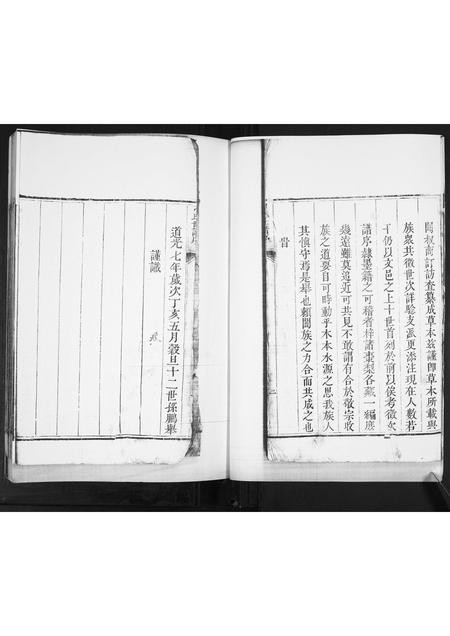 閣叔商訂訪查纂成草本茲謹即草木所載與
族眾共徵世次詳騐支派更添注現在人數若
干仍以文邑之上十世首列於前以俟考徵次
譜序隸墨籍之可稽者梓諸棗梨各藏一編庶
幾遠雖莫追近可共見不敢謂有合於敬宗收
族之道要自可時動乎木本水源之思我族人
其慎守焉是舉也賴閤族之力合而共成之也
旹
道光七年歲次丁亥五月穀旦十二世孫鵬舉
謹識